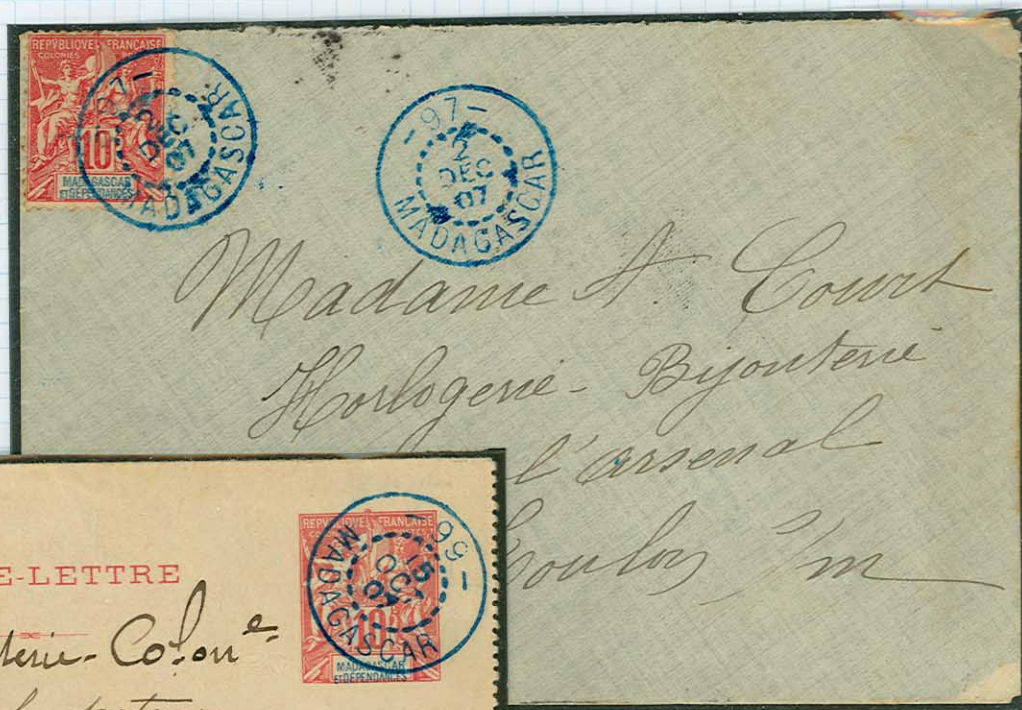 REPVBLIQVE FRANÇAISE
COLONIES
10
MADAGASCAR
ET DÉPENDANCES
-97-
2
DEC
07
MADAGASCAR
-97-
2
DEC
07
MADAGASCAR
Madame A. Court
Horlogerie - Bijouterie
l'arsenal
Toulon
E-LETTRE
REPVBLIQVE FRANÇAISE
10
MADAGASCAR
ET DÉPENDANCES
-99-
15
OCT
07
MADAGASCAR
terie - Colon.le